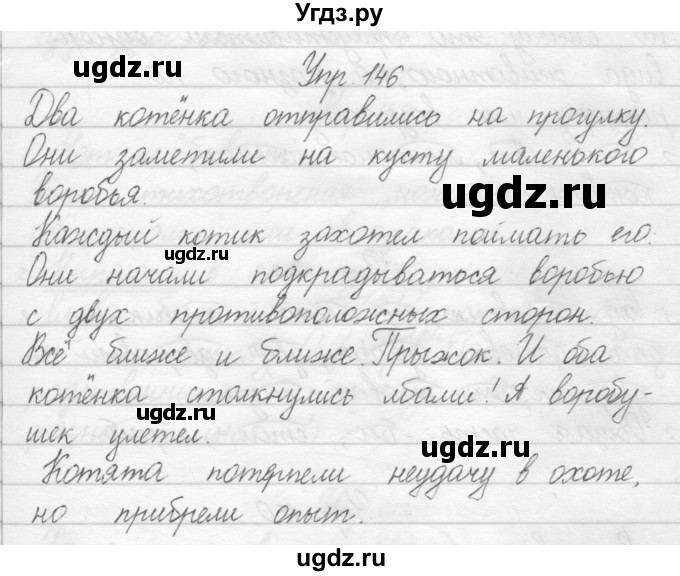 Угдз.ру
ugdz.ru
Упр. 146.
Два котёнка отправились на прогулку.
Они заметили на кусту маленького
воробья.
ugdz.ru
Каждый котик захотел поймать его.
ugdz.ru
Они начали подкрадываться воробью
с двух противоположных сторон.
Всё ближе и ближе. Прыжок. И оба
котёнка столкнулись лбами! А воробу-
ugdz.ru
шек улетел.
ugdz.ru
Котята потерпели неудачу в охоте,
но прибрели опыт.
ugdz.ru